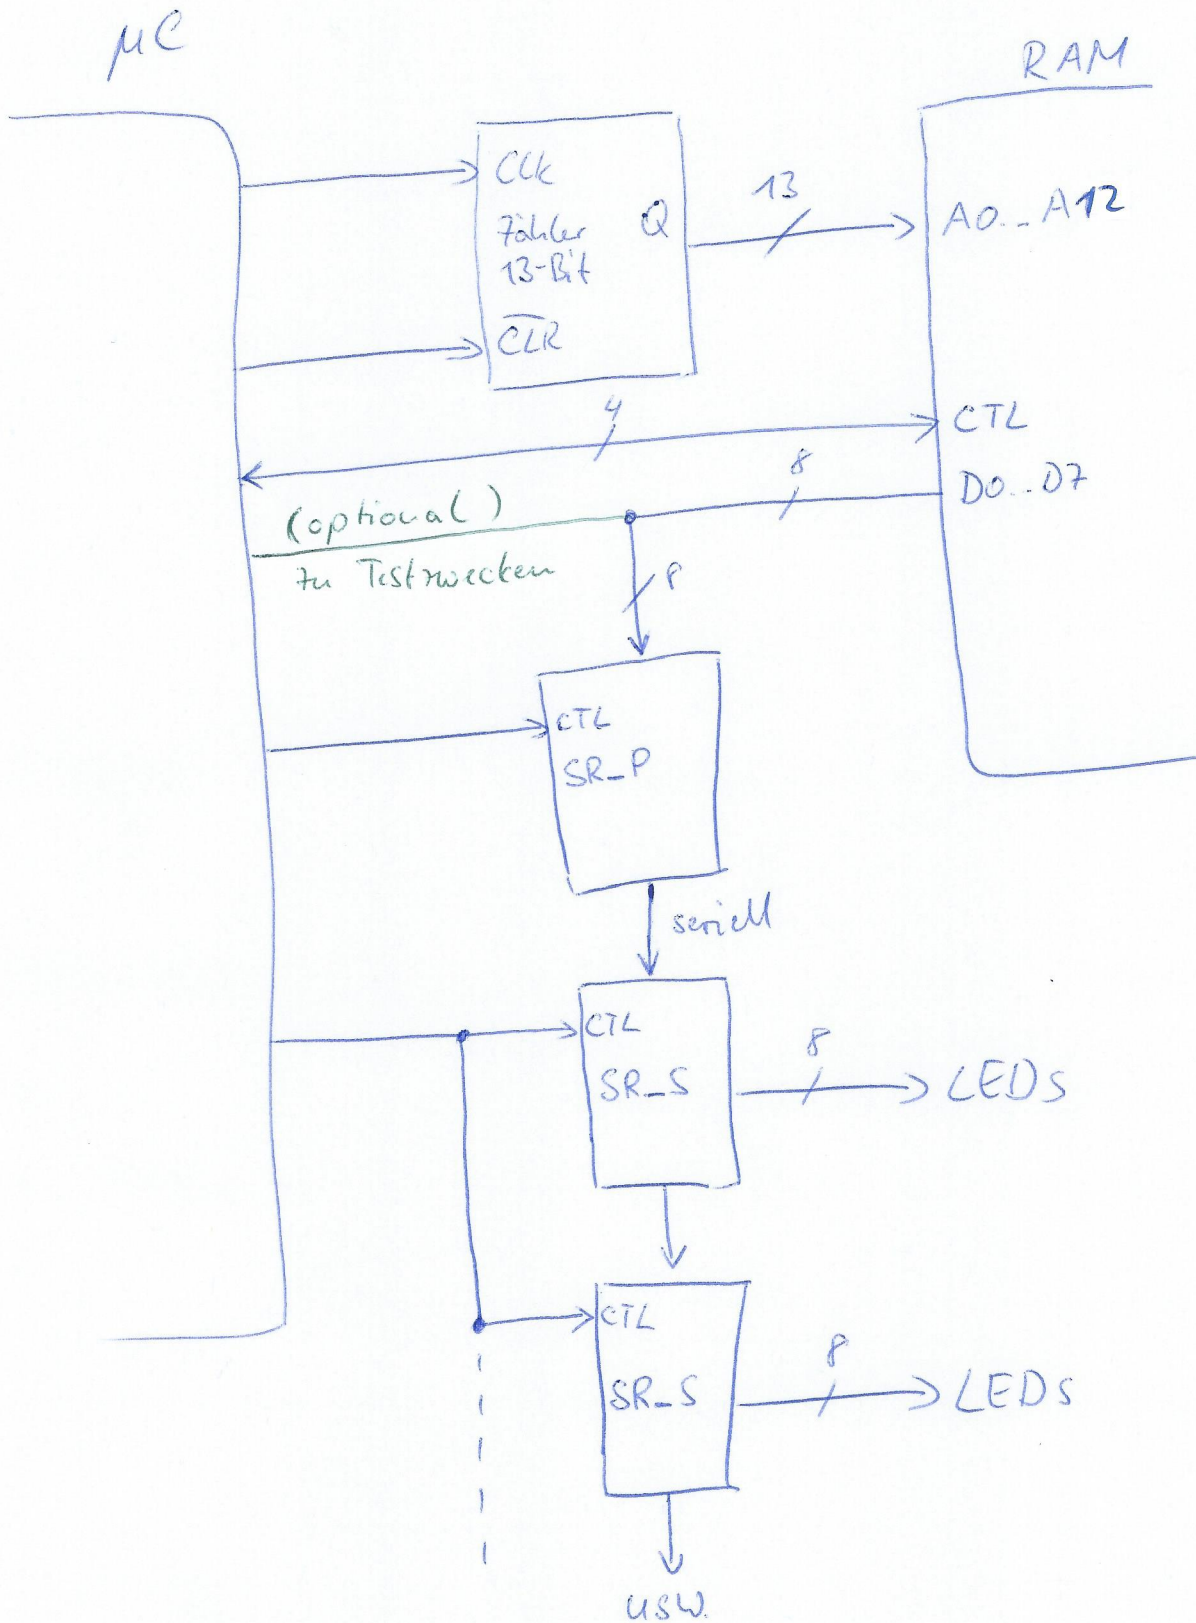 µC
RAM
CLK
Zähler
13-Bit
Q
CLR
13
A0...A12
4
CTL
8
D0...D7
(optional)
zu Testzwecken
8
CTL
SR_P
seriell
CTL
SR_S
8
LEDs
CTL
SR_S
8
LEDs
usw.